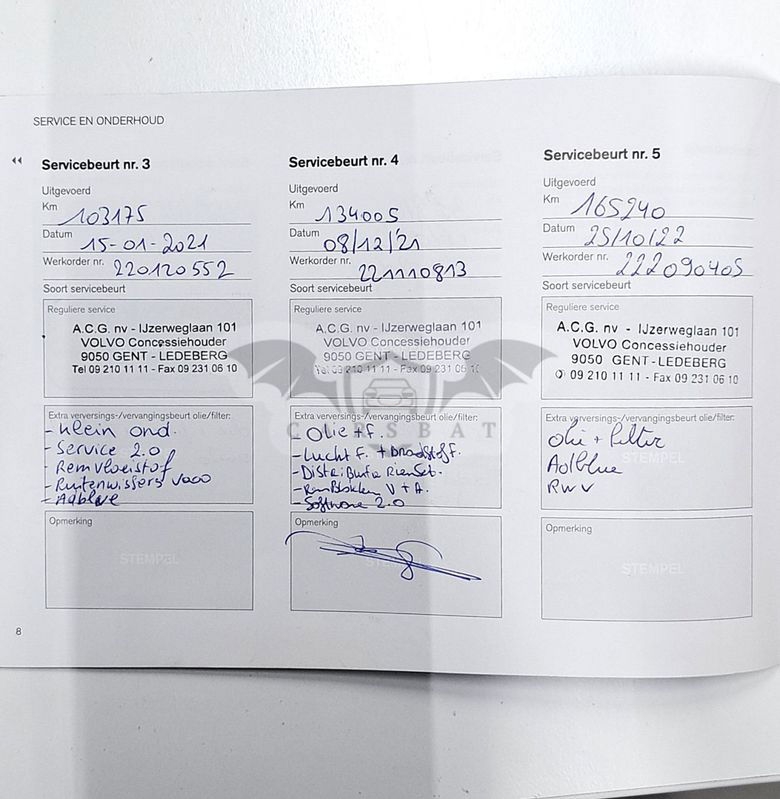 SERVICE EN ONDERHOUD
Servicebeurt nr. 3
Uitgevoerd
Km 103175
Datum 15-01-2021
Werkorder nr. 220120552
Soort servicebeurt
Reguliere service
A.C.G. nv - IJzerweglaan 101
VOLVO Concessiehouder
9050 GENT - LEDEBERG
Tel 09 210 11 11 - Fax 09 231 06 10
Extra verversings-/vervangingsbeurt olie/filter:
- Klein ond.
- Service 2.0
- Remvloeistof
- Ruitenwissers
- Adblue
Opmerking
STEMPEL
Servicebeurt nr. 4
Uitgevoerd
Km 134005
Datum 08/12/21
Werkorder nr. 221110813
Soort servicebeurt
Reguliere service
A.C.G. nv - IJzerweglaan 101
VOLVO Concessiehouder
9050 GENT - LEDEBERG
Tel 09 210 11 11 - Fax 09 231 06 10
Extra verversings-/vervangingsbeurt olie/filter:
- Olie + f.
- Lucht f. + brandstoff.
- Distributie Riem Set.
- Remblokken V + A.
- Software 2.0
Opmerking
Servicebeurt nr. 5
Uitgevoerd
Km 165240
Datum 25/10/22
Werkorder nr. 222090405
Soort servicebeurt
Reguliere service
A.C.G. nv - IJzerweglaan 101
VOLVO Concessiehouder
9050 GENT - LEDEBERG
✆ 09 210 11 11 - Fax 09 231 06 10
Extra verversings-/vervangingsbeurt olie/filter:
olie + filter
STEMPEL
Adblue
RWV
Opmerking
STEMPEL
CARSBAT
8